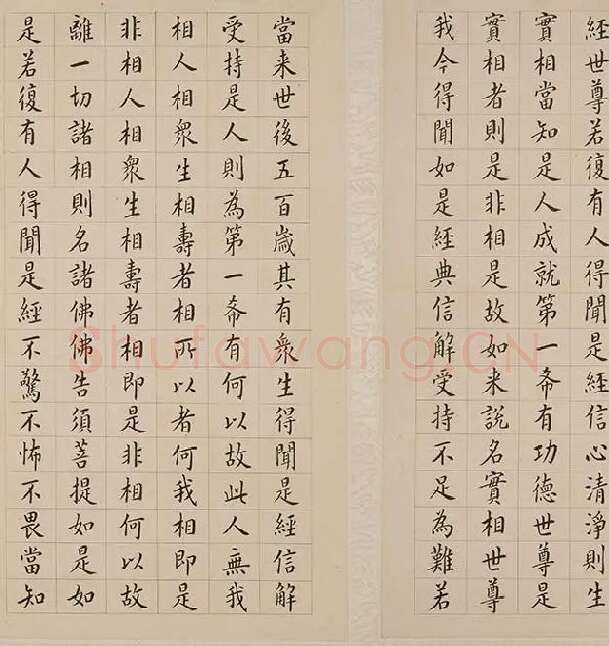 經世尊若復有人得聞是經信心清淨則生
實相當知是人成就第一希有功德世尊是
實相者則是非相是故如来說名實相世尊
我今得聞如是經典信解受持不足為難若
當来世後五百歲其有衆生得聞是經信解
受持是人則為第一希有何以故此人無我
相人相衆生相壽者相所以者何我相即是
非相人相衆生相壽者相即是非相何以故
離一切諸相則名諸佛佛告須菩提如是如
是若復有人得聞是經不驚不怖不畏當知
Shufawang.CN